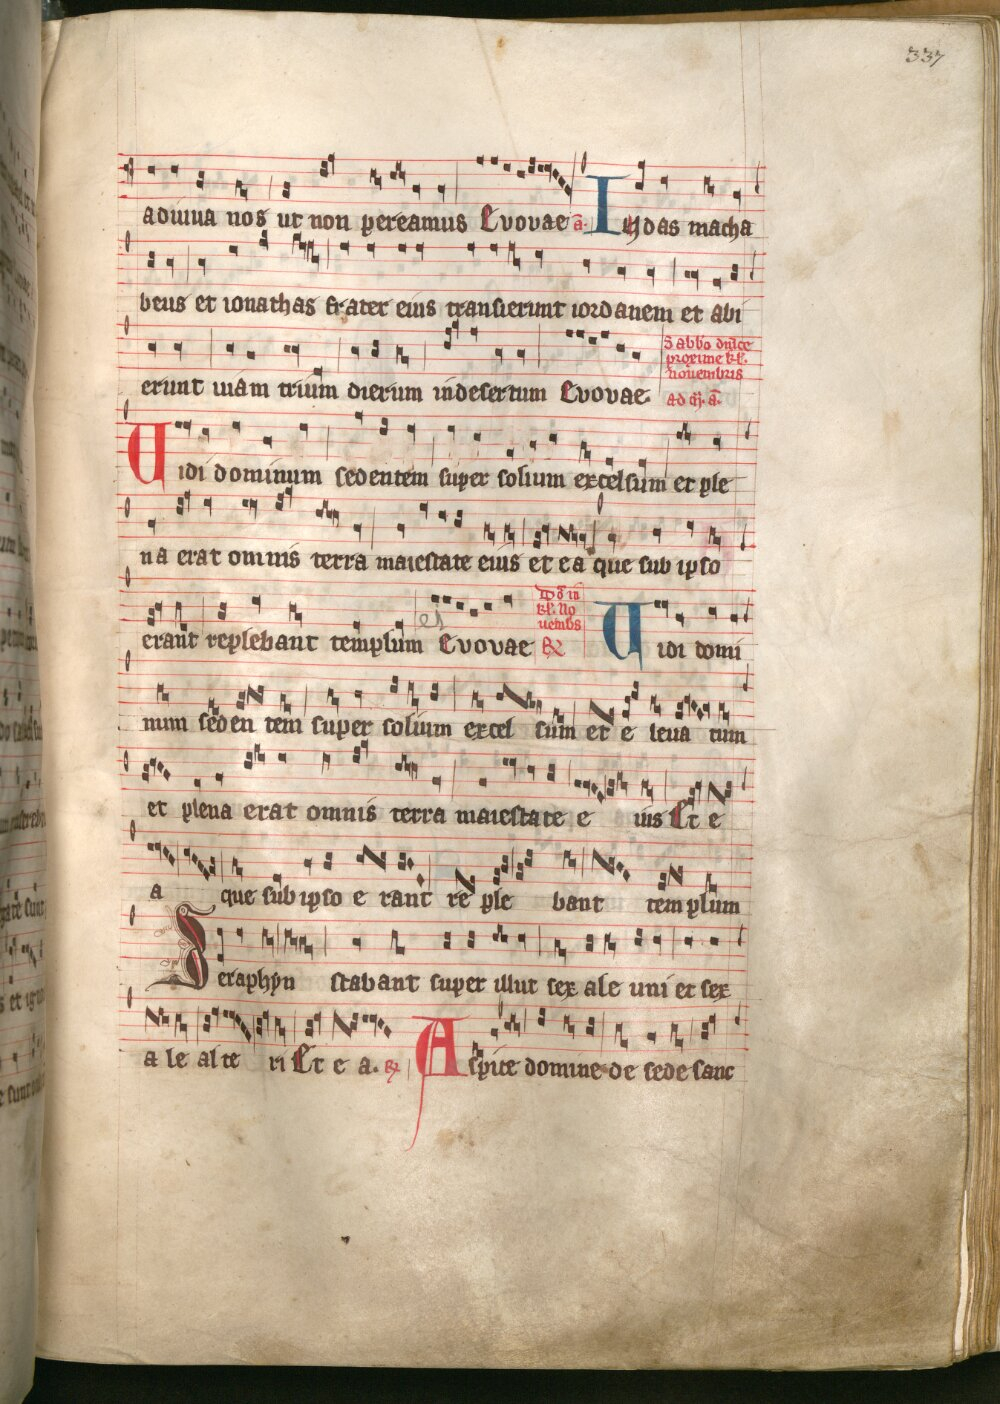 337
adiuua nos ut non pereamus Euouae a. Iudas macha
beus et ionathas frater eius transierunt iordanem et abi
erunt uiam trium dierum indesertum Euouae.
Sabbo dnice
proxime kl.
nouembris
ad m. a.
Uidi dominum sedentem super solium excelsum et ple
na erat omnis terra maiestate eius et ea que sub ipso
erant replebant templum Euouae
kl. no
uembs
Uidi domi
num seden tem super solium excel sum et e leua tum
et plena erat omnis terra maiestate e ius Et e
a que sub ipso e rant re ple bant templum
Seraphyn stabant super illut sex ale uni et sex
a le al te ri Et e a. Aspice domine de sede sanc